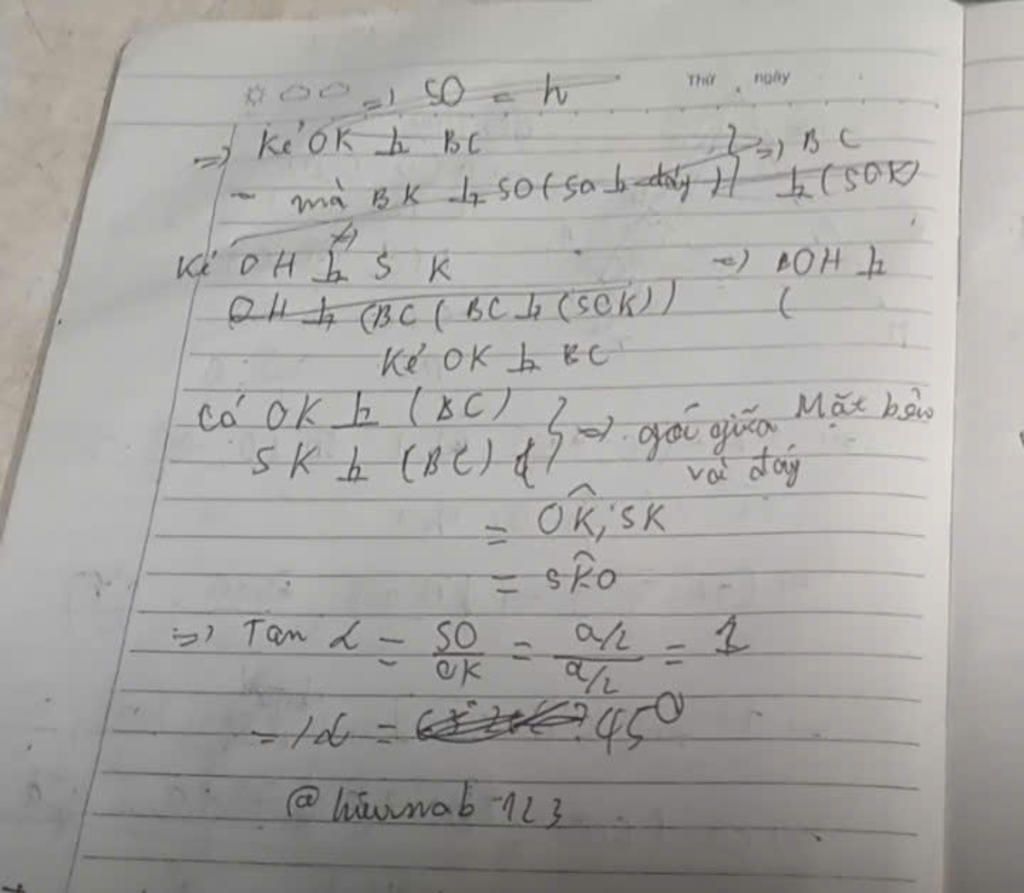 Thứ ngày
=) SO = h
=) Kẻ OK ⊥ BC
- mà BK ⊥ SO (SO ⊥ đáy) } =) BC ⊥ (SOK)
Kẻ OH ⊥ SK =) OH ⊥ (
OH ⊥ (BC ( BC ⊥ (SOK))
Kẻ OK ⊥ BC
Có OK ⊥ (BC)
SK ⊥ (BC) } =) góc giữa Mặt bên
và đáy
= OK, SK
= SKO
=) Tan α = SO/OK = a/2 / a/2 = 1
=) α = 45°